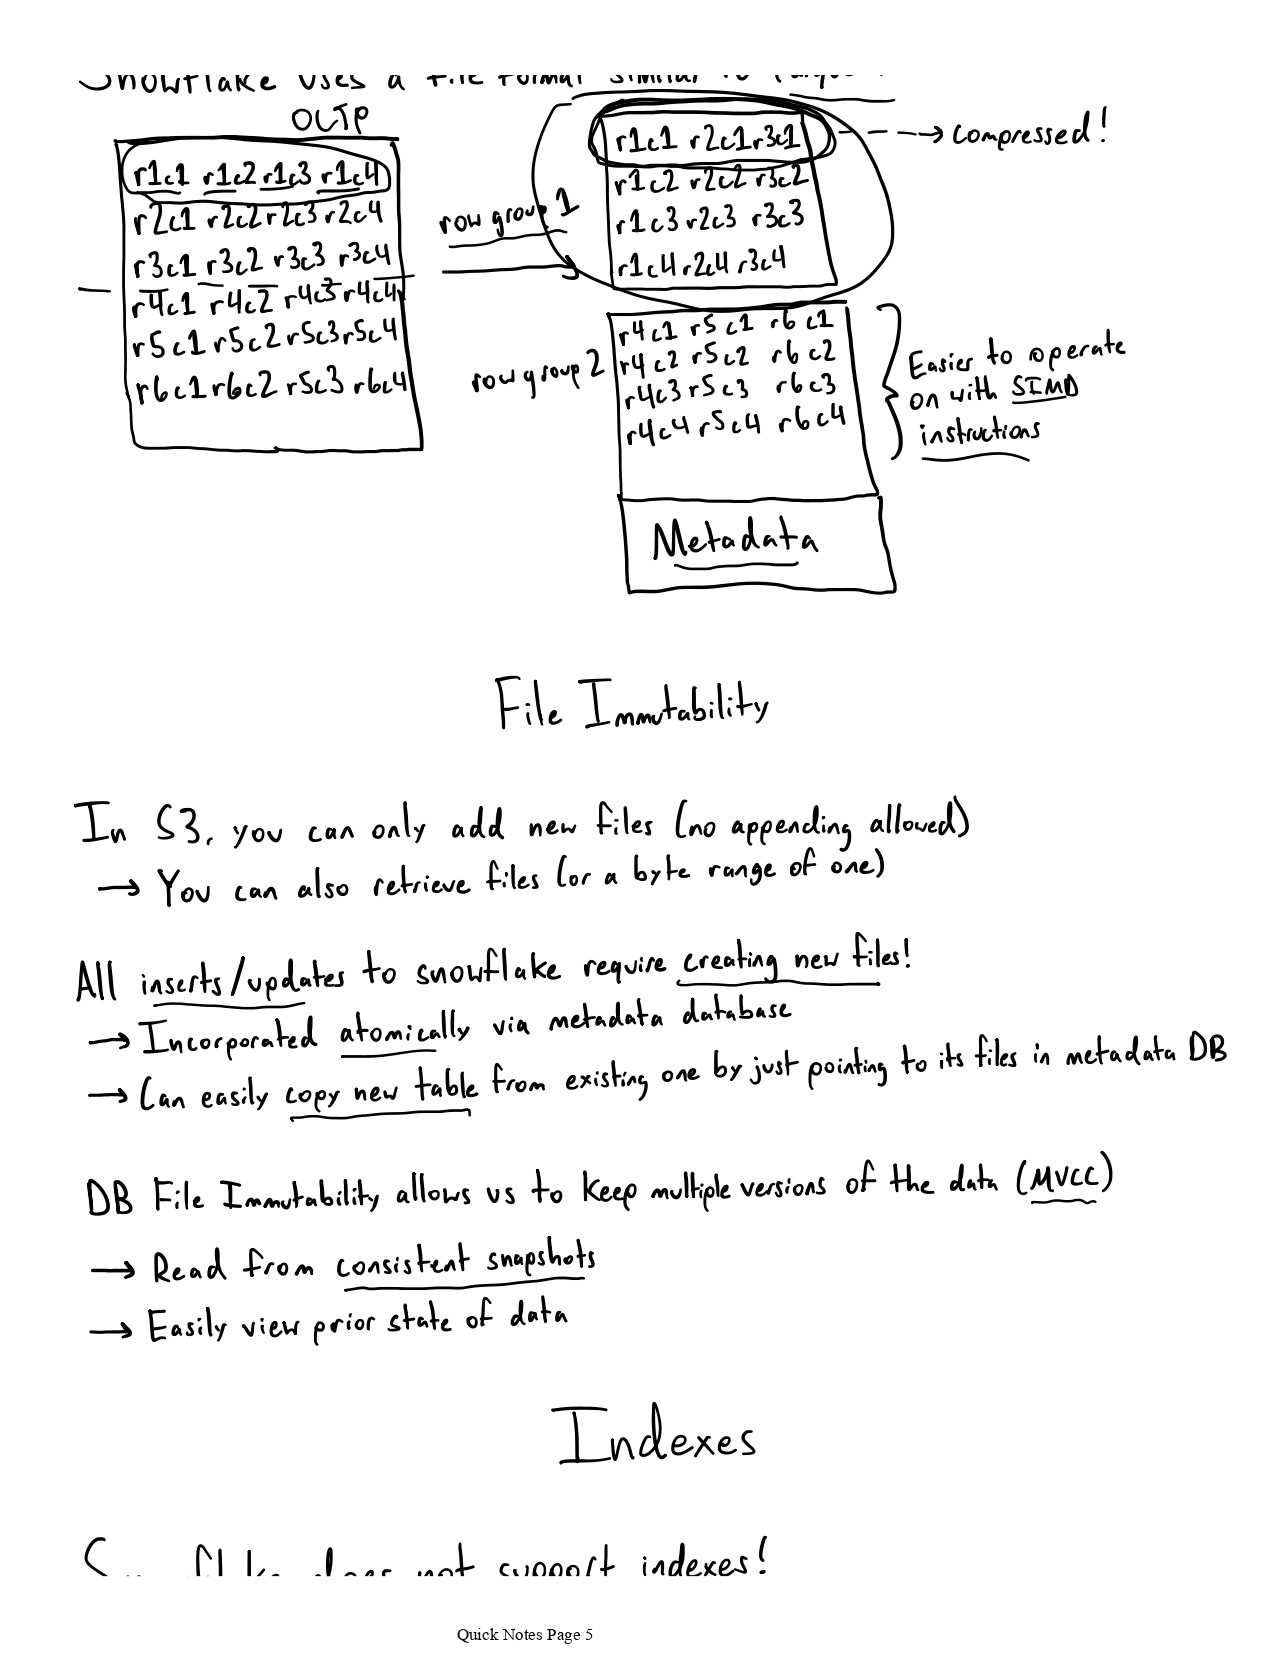 Snowflake uses a file format similar to Parquet!
OLTP
r1c1 r1c2 r1c3 r1c4
r2c1 r2c2 r2c3 r2c4
r3c1 r3c2 r3c3 r3c4
r4c1 r4c2 r4c3 r4c4
r5c1 r5c2 r5c3 r5c4
r6c1 r6c2 r5c3 r6c4
row group 1
r1c1 r2c1 r3c1
r1c2 r2c2 r3c2
r1c3 r2c3 r3c3
r1c4 r2c4 r3c4
compressed!
row group 2
r4c1 r5c1 r6c1
r4c2 r5c2 r6c2
r4c3 r5c3 r6c3
r4c4 r5c4 r6c4
Easier to operate
on with SIMD
instructions
Metadata
File Immutability
In S3, you can only add new files (no appending allowed)
→ You can also retrieve files (or a byte range of one)
All inserts/updates to snowflake require creating new files!
→ Incorporated atomically via metadata database
→ Can easily copy new table from existing one by just pointing to its files in metadata DB
DB File Immutability allows us to keep multiple versions of the data (MVCC)
→ Read from consistent snapshots
→ Easily view prior state of data
Indexes
Snowflake does not support indexes!
Quick Notes Page 5